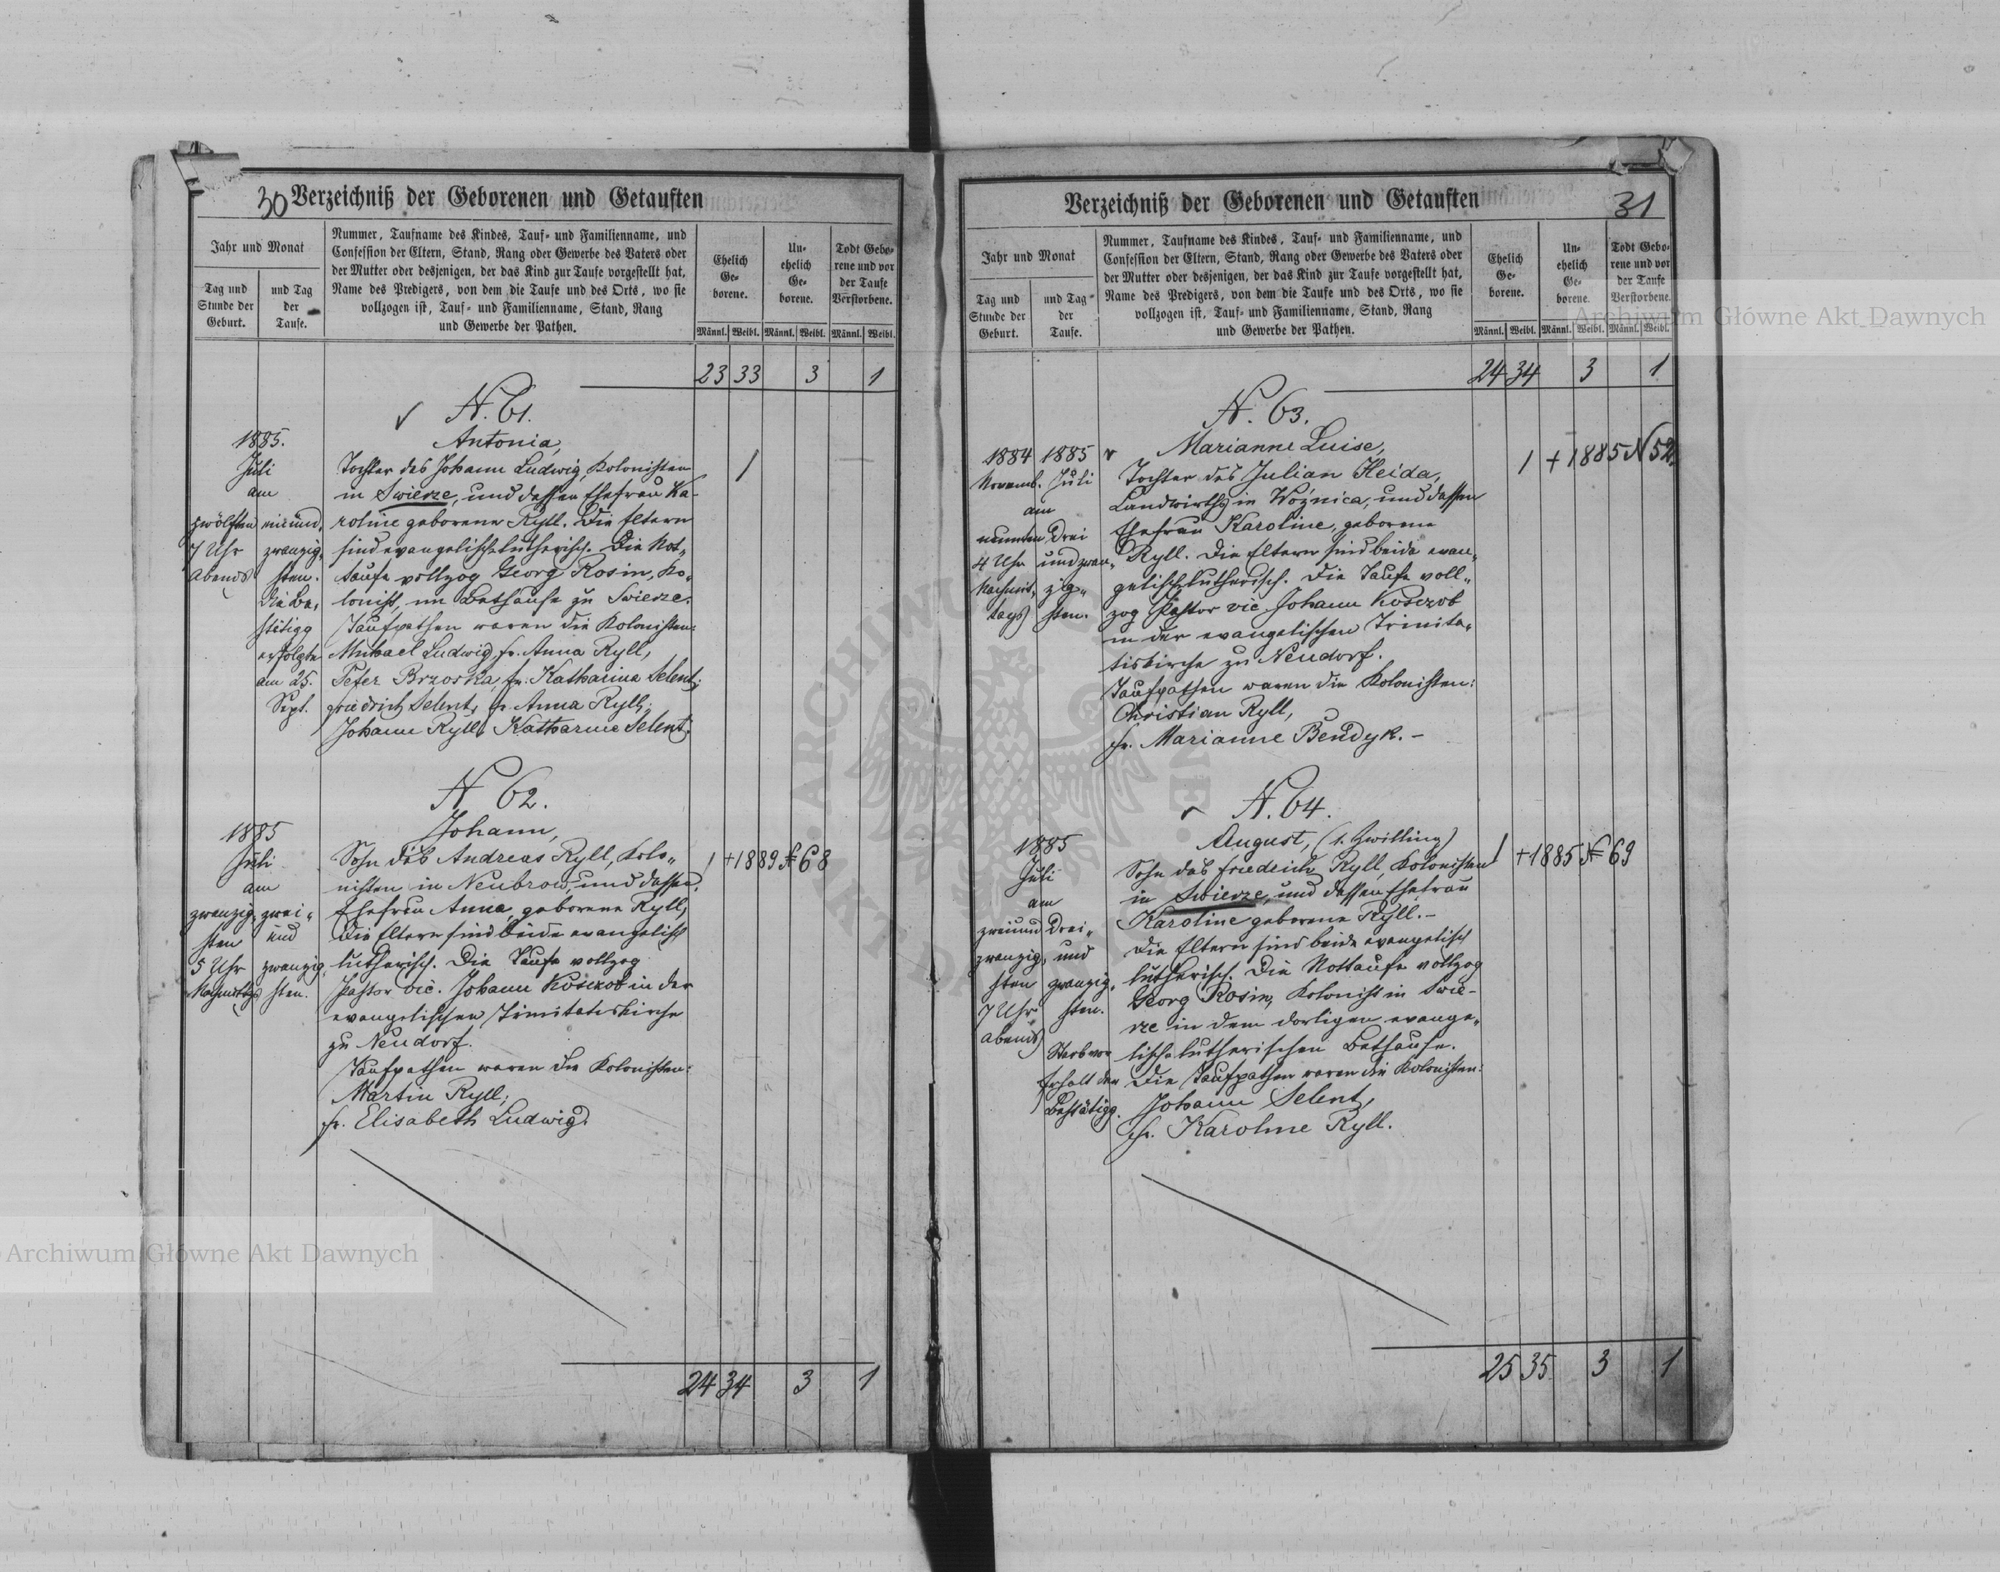 30 Verzeichniß der Geborenen und Getauften
Jahr und Monat
Tag und
Stunde der
Geburt.
und Tag
der
Taufe.
Nummer, Taufname des Kindes, Tauf- und Familienname, und
Confession der Eltern, Stand, Rang oder Gewerbe des Vaters oder
der Mutter oder desjenigen, der das Kind zur Taufe vorgestellt hat,
Name des Predigers, von dem die Taufe und des Orts, wo sie
vollzogen ist, Tauf- und Familienname, Stand, Rang
und Gewerbe der Pathen.
Ehelich
Ge-
borene.
Un-
ehelich
Ge-
borene.
Todt Gebo-
rene und vor
der Taufe
Verstorbene.
Männl. Weibl. Männl. Weibl. Männl. Weibl.
23 33 3 1
N. 61.
1885.
Juli
am
zwölften
7 Uhr
Abends
zwanzig-
sten.
Die Be-
stätigg
erfolgte
am 25.
Sept.
Antonia,
Tochter des Johann Ludwig, Kolonisten
in Swierze, und dessen Ehefrau Ka-
roline geborene Ryll. Die Eltern
sind evangelischlutherisch. Die Not-
taufe vollzog Georg Rosin, Ko-
lonist, im Bethause zu Swierze.
Taufpathen waren die Kolonisten:
Michael Ludwig, fr. Anna Ryll,
Peter Brzoska, fr. Katharina Selent;
Friedrich Selent, fr. Anna Ryll;
Johann Ryll, Katharine Selent.
1
N 62.
1885
Juli
am
zwanzig-
sten
5 Uhr
Nachmittgs
zwei-
und
zwanzig-
sten.
Johann,
Sohn des Andreas Ryll, Kolo-
nisten in Neubrow, und dessen
Ehefrau Anna, geborene Ryll,
Die Eltern sind beide evangelisch
lutherisch. Die Taufe vollzog
Pastor vic. Johann Koserob in der
evangelischen Trinitatiskirche
zu Neudorf.
Taufpathen waren die Kolonisten:
Martin Ryll;
fr. Elisabeth Ludwig.
1 +1889 № 68
24 34 3 1
Verzeichniß der Geborenen und Getauften 31
Jahr und Monat
Tag und
Stunde der
Geburt.
und Tag
der
Taufe.
Nummer, Taufname des Kindes, Tauf- und Familienname, und
Confession der Eltern, Stand, Rang oder Gewerbe des Vaters oder
der Mutter oder desjenigen, der das Kind zur Taufe vorgestellt hat,
Name des Predigers, von dem die Taufe und des Orts, wo sie
vollzogen ist, Tauf- und Familienname, Stand, Rang
und Gewerbe der Pathen.
Ehelich
Ge-
borene.
Un-
ehelich
Ge-
borene.
Todt Gebo-
rene und vor
der Taufe
Verstorbene.
Männl. Weibl. Männl. Weibl. Männl. Weibl.
24 34 3 1
N. 63.
1884 1885
Novemb. Juli
am
neunten
4 Uhr
Nachmit-
tags
Drei
und zwan-
zig-
sten.
Marianne Luise,
Tochter des Julian Heida,
Landwirths in Woźnica, und dessen
Ehefrau Karoline, geborene
Ryll. Die Eltern sind beide evan-
gelischlutherisch. Die Taufe voll-
zog Pastor vic Johann Koserob
in der evangelischen Trinita-
tiskirche zu Neudorf.
Taufpathen waren die Kolonisten:
Christian Ryll,
fr. Marianne Bendyk. –
1 +1885 N 52.
N. 64.
1885
Juli
am
zweiund
zwanzig-
sten
7 Uhr
Abends
Drei-
und
zwanzig-
sten.
Starb vor
Erhalt der
Bestätigg.
August, (1. Zwilling)
Sohn des Friedrich Ryll, Kolonisten
in Swierze, und dessen Ehefrau
Karoline geborene Ryll. –
Die Eltern sind beide evangelisch
lutherisch. Die Nottaufe vollzog
Georg Rosin, Kolonist in Swie-
rze in dem dortigen evange-
lischlutherischen Bethause.
Die Taufpathen waren die Kolonisten:
Johann Selent,
fr. Karoline Ryll.
1 +1885 № 69
25 35 3 1
Archiwum Główne Akt Dawnych
Archiwum Główne Akt Dawnych